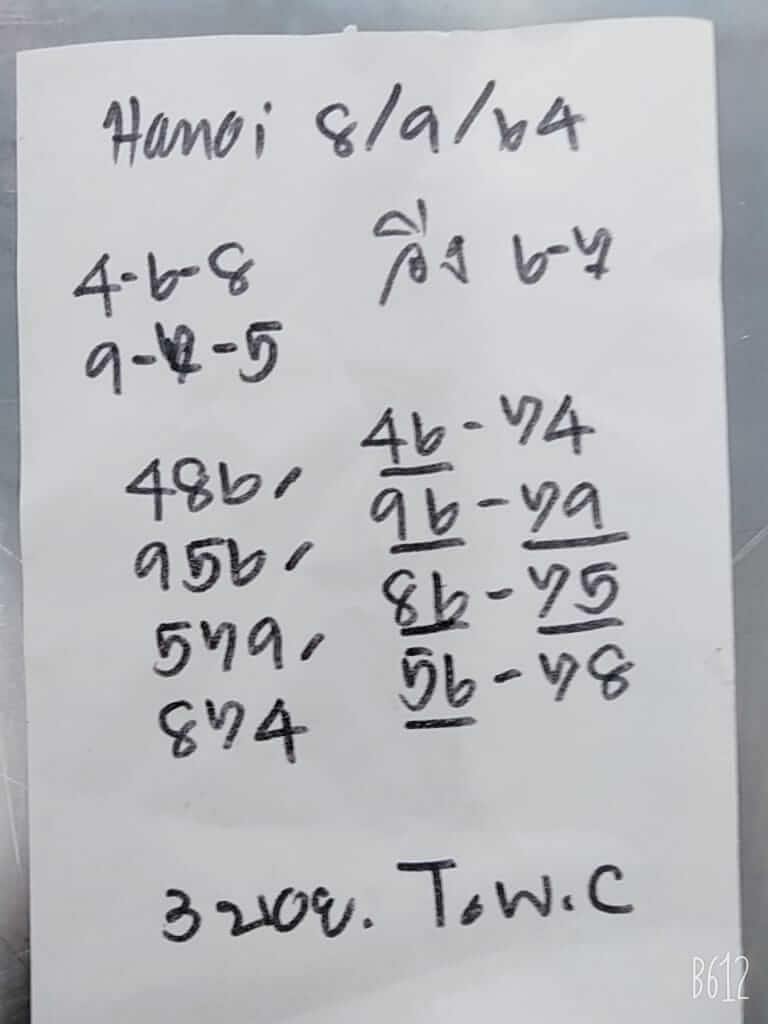 Hanoi 8/9/64
4-6-8 วิ่ง 6-7
9-7-5
486, 46-74
956, 96-79
579, 86-75
874 56-78
T.W.C
B612